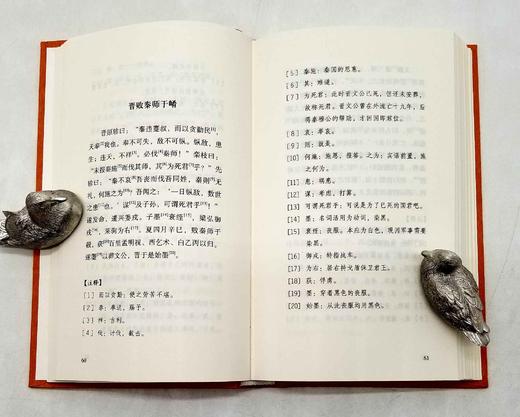 晋败秦师于崤
晋原轸曰:“秦违蹇叔,而以贪勤民[1],
天奉我也。奉不可失,敌不可纵。纵敌,患
生;违天,不祥。必伐秦师!”栾枝曰:
“未报秦施而伐其师,其为死君乎?”先
轸曰:“秦不哀吾丧而伐吾同姓,秦则无
礼,何施之为?吾闻之:‘一日纵敌,数世
之患也。’谋及子孙,可谓死君乎!”
遂发命,遽兴姜戎。子墨衰绖,梁弘御
戎,莱驹为右。夏四月辛巳,败秦师于
殽,获百里孟明视、西乞术、白乙丙以归。
遂墨以葬文公,晋于是始墨。
【注释】
[1] 而以贪勤:使之劳苦不堪。
[2] 奉:奉送,赐予。
[3] 祥:吉利。
[4] 伐:讨伐,截击。
60
[5] 秦施:秦国的恩惠。
[6] 其:难道。
[7] 为死君:此时晋文公已死,但还未安葬,
故称死君。晋文公曾在外流亡十九年,后
得秦穆公的帮助,才回国即君位。
[8] 哀:举哀。
[9] 则:就是。
[10] 何施:施恩,报答。之为:宾语前置,施
之何为。
[11] 患:祸患。
[12] 谋:考虑,打算。
[13] 可谓死君乎:可说是为了已死的国君吧。
[14] 墨:名词活用为动词,染黑。
[15] 衰绖:丧服。本应为白色,现因军事需要
染黑。
[16] 御戎:特指战车。
[17] 为右:居右持戈盾保卫君王。
[18] 获:俘虏。
[19] 墨:穿着黑色的丧服。
[20] 始墨:从此丧服均用黑色。
61